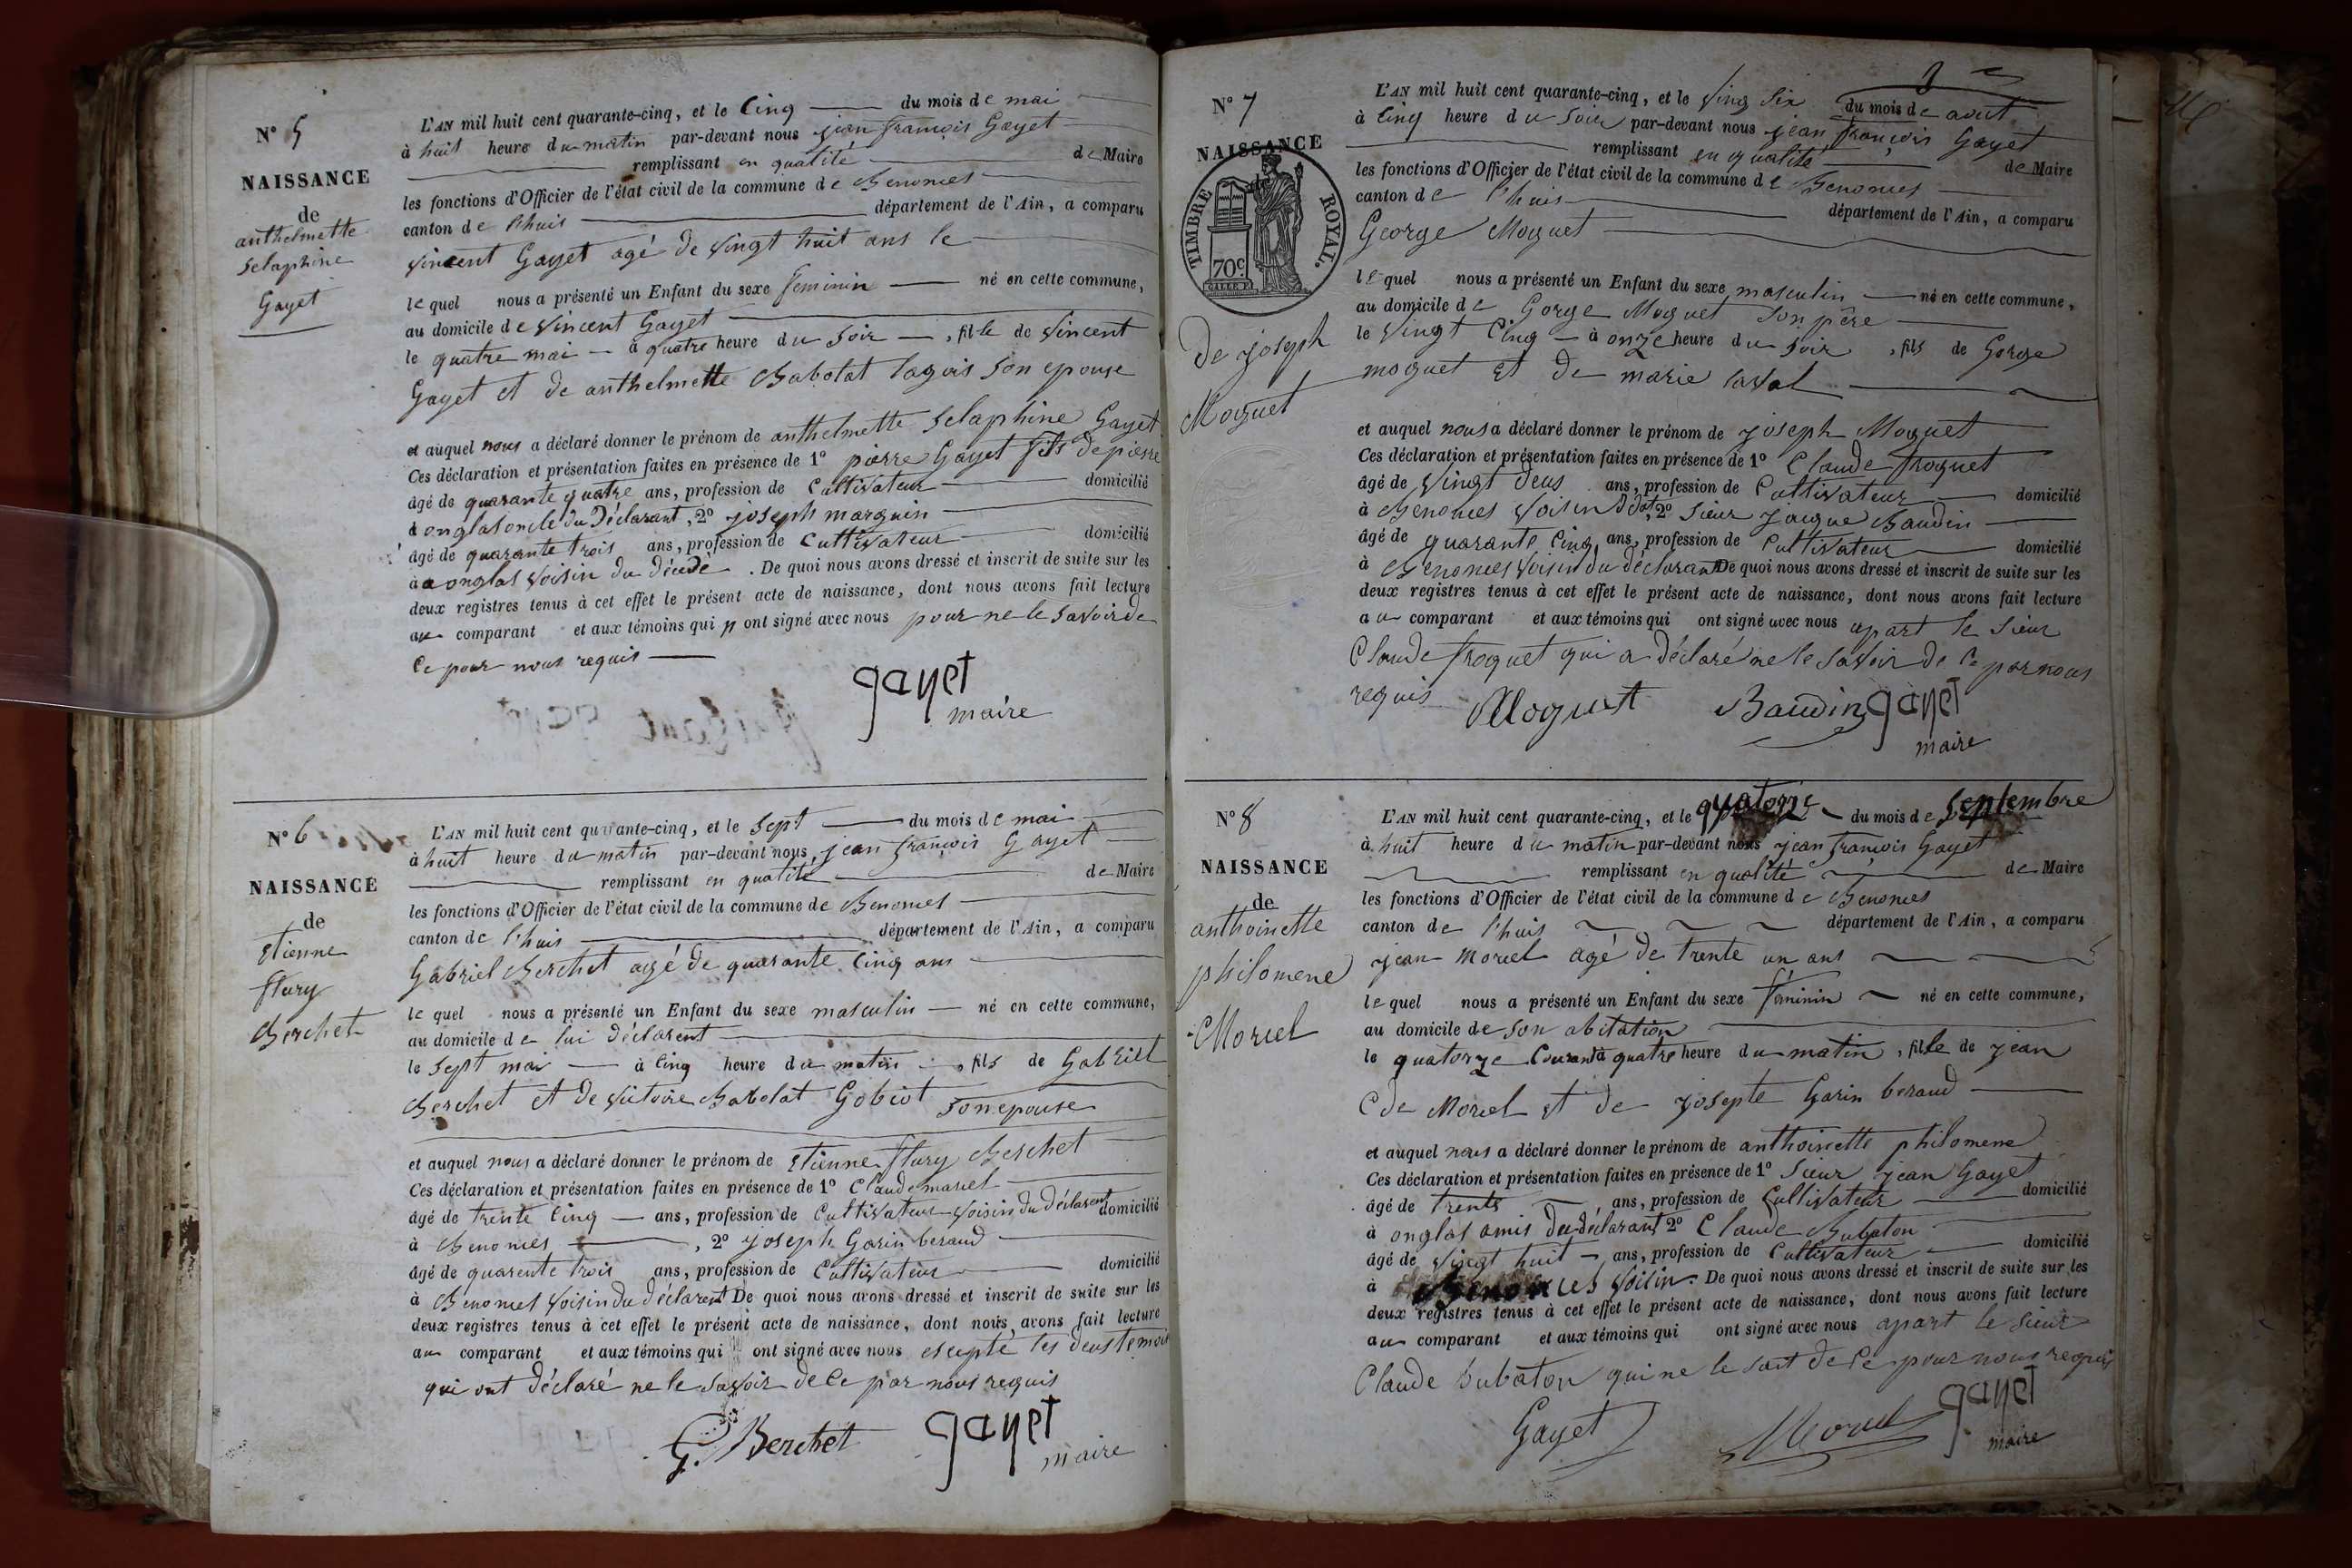 N° 5
NAISSANCE
de
anthelmette
Selaphine
Gayet
L'AN mil huit cent quarante-cinq, et le Cinq du mois de mai
à huit heure du matin par-devant nous jean françois Gayet
remplissant en qualité de Maire
les fonctions d'Officier de l'état civil de la commune de Benonces
canton de l'huis département de l'Ain, a comparu
vincent Gayet agé de vingt huit ans le
le quel nous a présenté un Enfant du sexe feminin né en cette commune,
au domicile de vincent Gayet
le quatre mai à quatre heure du soir, fille de vincent
Gayet et de anthelmette Babolat lagois son epouse
et auquel nous a déclaré donner le prénom de anthelmette Selaphine Gayet
Ces déclaration et présentation faites en présence de 1° pierre Gayet fils de pierre
âgé de quarante quatre ans, profession de Cultivateur domicilié
à onglas oncle du Déclarant, 2° joseph marguin
âgé de quarante trois ans, profession de Cultivateur domicilié
à a onglas voisin du . De quoi nous avons dressé et inscrit de suite sur les
deux registres tenus à cet effet le présent acte de naissance, dont nous avons fait lecture
au comparant et aux témoins qui n ont signé avec nous pour ne le savoir de
Ce pour nous requis
gayet
maire
N° 6
NAISSANCE
de
Etienne
flury
Berchet
L'AN mil huit cent quarante-cinq, et le Sept du mois de mai
à huit heure du matin par-devant nous jean françois Gayet
remplissant en qualité de Maire
les fonctions d'Officier de l'état civil de la commune de Benonces
canton de l'huis département de l'Ain, a comparu
Gabriel Berchet agé de quarante Cinq ans
le quel nous a présenté un Enfant du sexe masculin né en cette commune,
au domicile de lui déclarent
le Sept mai à Cinq heure du matin, fils de Gabriel
Berchet et de victoire Babolat Gobiot son epouse
et auquel nous a déclaré donner le prénom de Etienne flury Berchet
Ces déclaration et présentation faites en présence de 1° Claude maruel
âgé de trente Cinq ans, profession de Cultivateur voisin du déclarent domicilié
à Benonces, 2° joseph Garin beraud
âgé de quarente trois ans, profession de Cultivateur domicilié
à Benonces voisin du déclarent De quoi nous avons dressé et inscrit de suite sur les
deux registres tenus à cet effet le présent acte de naissance, dont nous avons fait lecture
au comparant et aux témoins qui ont signé avec nous esepté les deus temoit
qui ont déclaré ne le savoir de Ce par nous requis
G. Berchet gayet
maire
N° 7
NAISSANCE
TIMBRE ROYAL.
70c.
de joseph
Moguet
L'AN mil huit cent quarante-cinq, et le ving Six du mois de août
à Cinq heure du soir par-devant nous jean françois Gayet
remplissant en qualité de Maire
les fonctions d'Officier de l'état civil de la commune de Benonces
canton de l'huis département de l'Ain, a comparu
George Moguet
le quel nous a présenté un Enfant du sexe masculin né en cette commune,
au domicile de Gorge Moguet son père
le vingt Cinq à onze heure du soir, fils de Gorge
moguet et de marie laval
et auquel nous a déclaré donner le prénom de joseph Moguet
Ces déclaration et présentation faites en présence de 1° Claude froquet
âgé de vingt deus ans, profession de Cultivateur domicilié
à Benonces voisin 2° Sieur jacque Baudin
âgé de quarante Cinq ans, profession de Cultivateur domicilié
à Benonces voisin du déclarant De quoi nous avons dressé et inscrit de suite sur les
deux registres tenus à cet effet le présent acte de naissance, dont nous avons fait lecture
au comparant et aux témoins qui ont signé avec nous apart le Sieur
Claude froquet qui a déclaré ne le savoir de Ce par nous
requis Moguet Baudin gayet
maire
N° 8
NAISSANCE
de
anthoinette
philomene
Moruel
L'AN mil huit cent quarante-cinq, et le quatorze du mois de Septembre
à huit heure du matin par-devant nous jean françois Gayet
remplissant en qualité de Maire
les fonctions d'Officier de l'état civil de la commune de Benonces
canton de l'huis département de l'Ain, a comparu
jean Moruel agé de trente un ans
le quel nous a présenté un Enfant du sexe féminin né en cette commune,
au domicile de son abitation
le quatorze Courant à quatre heure du matin, fille de jean
Cde Moruel et de josepte Garin beraud
et auquel nous a déclaré donner le prénom de anthoinette philomene
Ces déclaration et présentation faites en présence de 1° Sieur jean Gayet
âgé de trente ans, profession de Cultivateur domicilié
à onglas amis du déclarant 2° Claude Bubaton
âgé de vingt huit ans, profession de Cultivateur domicilié
à Benonces voisin. De quoi nous avons dressé et inscrit de suite sur les
deux registres tenus à cet effet le présent acte de naissance, dont nous avons fait lecture
au comparant et aux témoins qui ont signé avec nous apart le Sieur
Claude bubaton qui ne le sait de Ce pour nous requis
Gayet Moruel gayet
maire